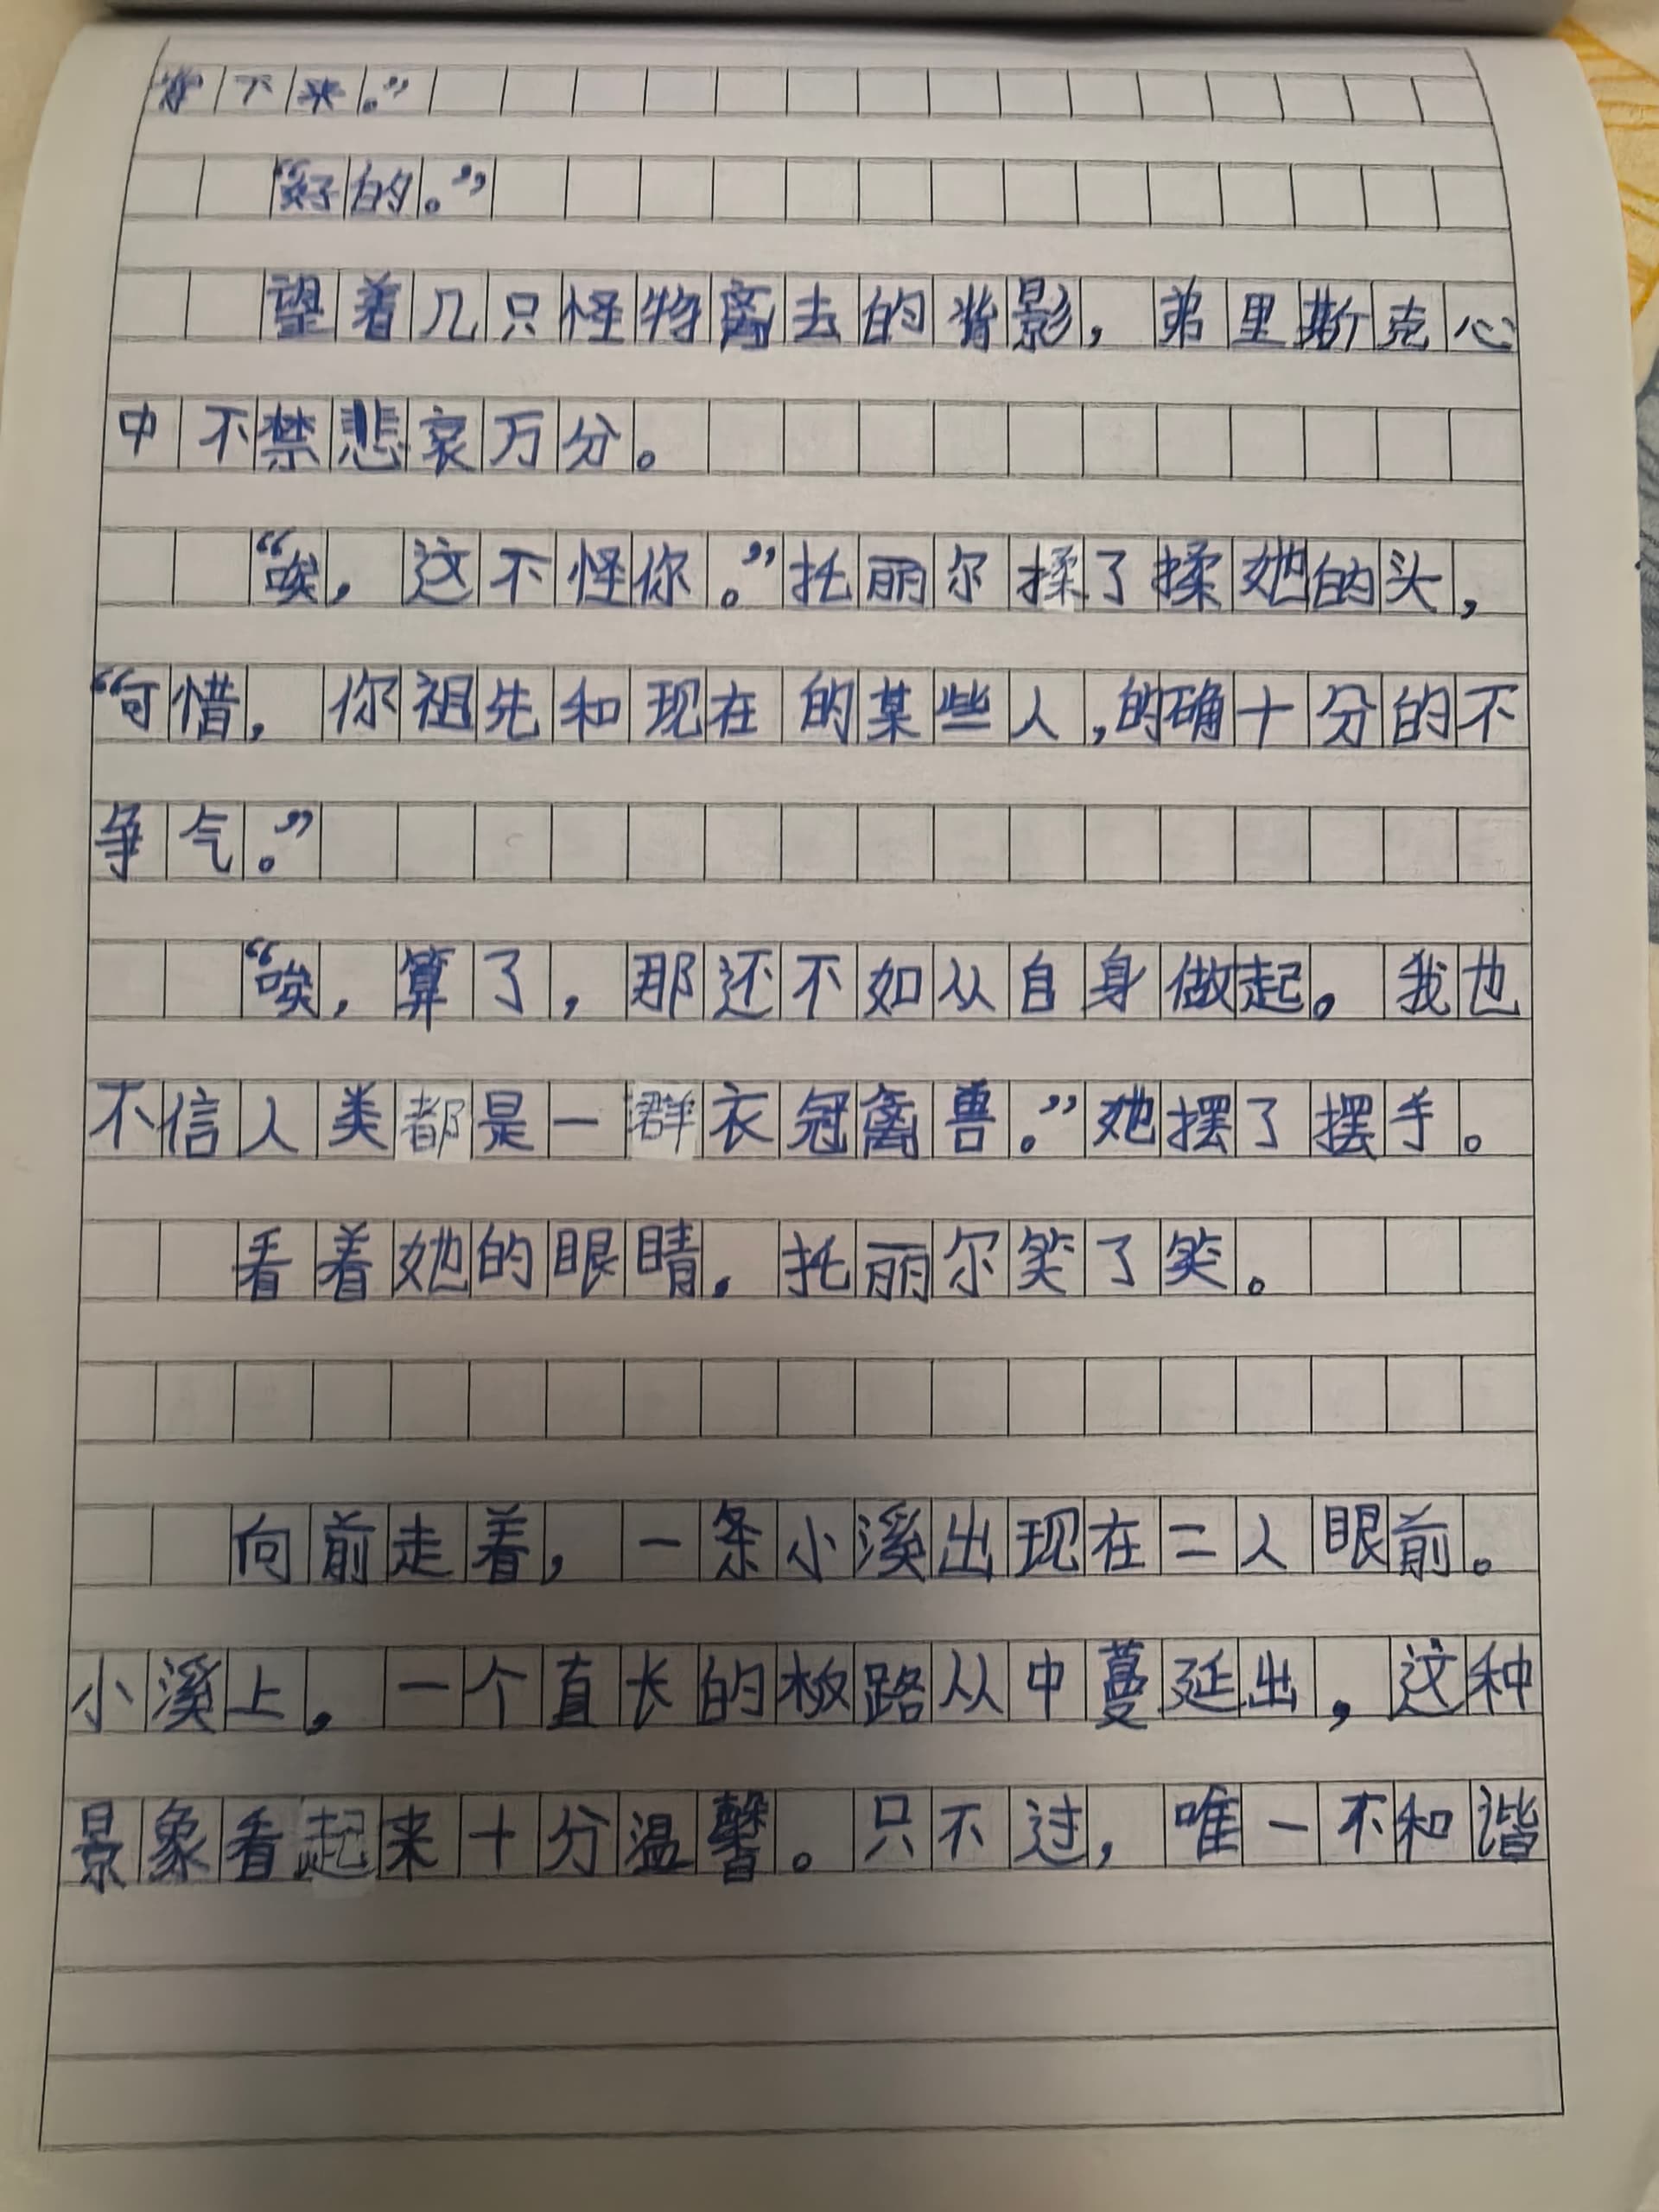 下来。”
“好的。”
望着几只怪物离去的背影，弟里斯克心
中不禁悲哀万分。
“唉，这不怪你。”托丽尔揉了揉她的头，
“可惜，你祖先和现在的某些人，的确十分的不
争气。”
“唉，算了，那还不如从自身做起。我也
不信人类都是一群衣冠禽兽。”她摆了摆手。
看着她的眼睛，托丽尔笑了笑。
向前走着，一条小溪出现在二人眼前。
小溪上，一个直长的板路从中蔓延出，这种
景象看起来十分温馨。只不过，唯一不和谐